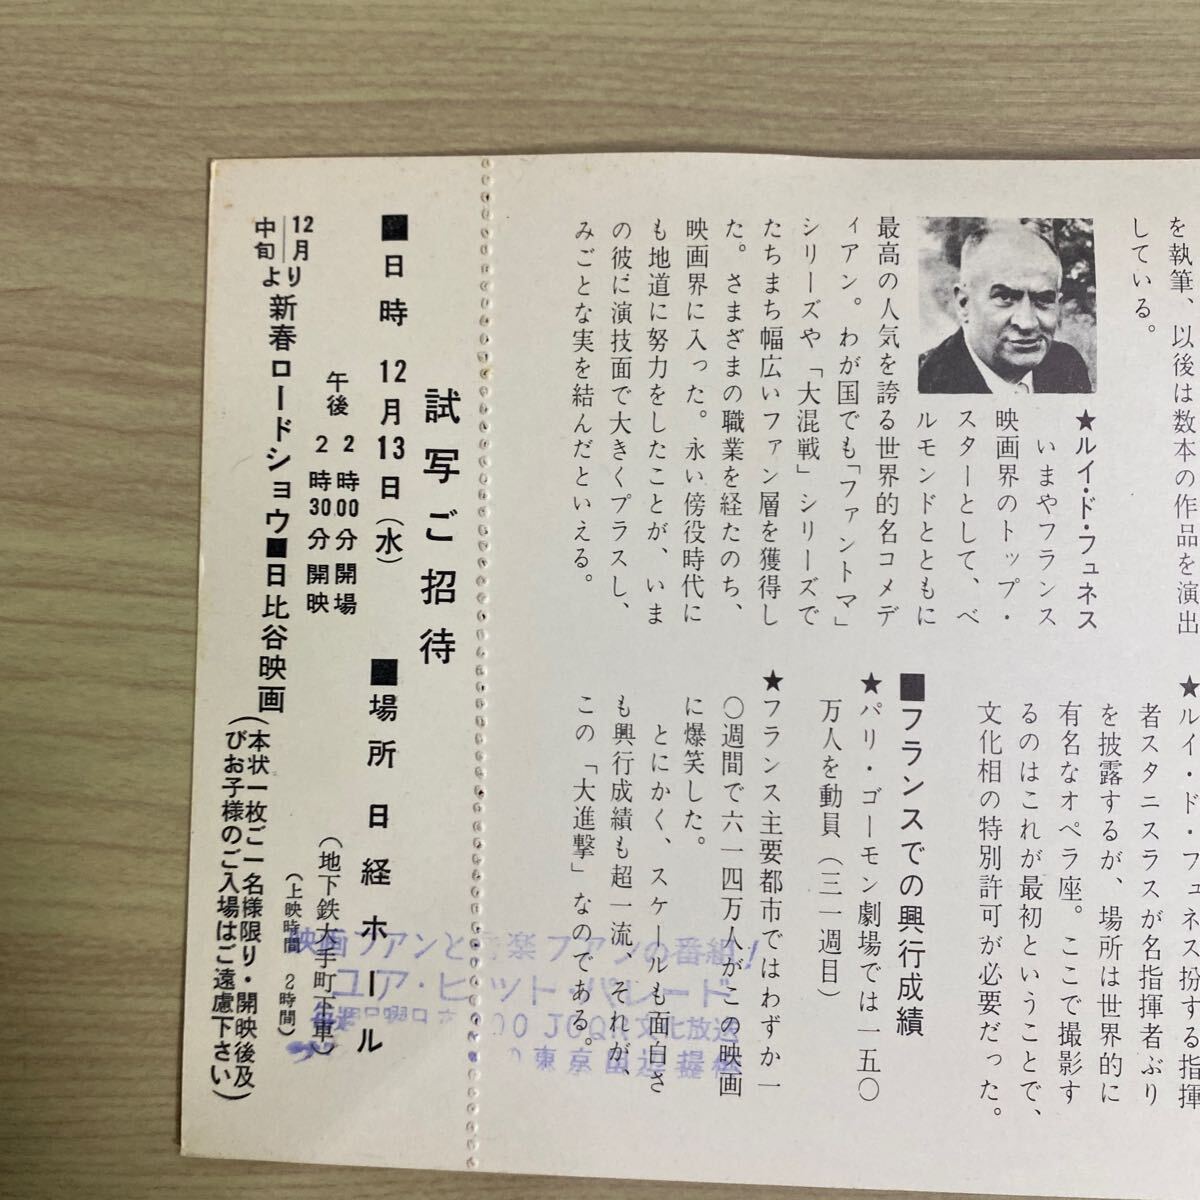 を執筆、以後は数本の作品を演出
している。
★ルイ・ド・フュネス
いまやフランス
映画界のトップ・
スターとして、ベ
ルモンドとともに
最高の人気を誇る世界的名コメデ
ィアン。わが国でも「ファントマ」
シリーズや「大混戦」シリーズで
たちまち幅広いファン層を獲得し
た。さまざまの職業を経たのち、
映画界に入った。永い傍役時代に
も地道に努力をしたことが、いま
の彼に演技面で大きくプラスし、
みごとな実を結んだといえる。
★ルイ・ド・フュネス扮する指揮
者スタニスラスが名指揮者ぶり
を披露するが、場所は世界的に
有名なオペラ座。ここで撮影す
るのはこれが最初ということで、
文化相の特別許可が必要だった。
■フランスでの興行成績
★パリ・ゴーモン劇場では一五〇
万人を動員（三一週目）
★フランス主要都市ではわずか一
〇週間で六一四万人がこの映画
に爆笑した。
とにかく、スケールも面白さ
も興行成績も超一流、それが、
この「大進撃」なのである。
試写ご招待
■日時 12月13日（水）
午後 2時00分開場
2時30分開映
■場所 日経ホール
（地下鉄大手町下車）
（上映時間 2時間）
12月中旬より新春ロードショウ■日比谷映画
（本状一枚ご一名様限り・開映後及
びお子様のご入場はご遠慮下さい）
映画ファンと音楽ファンの番組！
ユア・ヒット・パレード
00 JOQR文化放送
東京